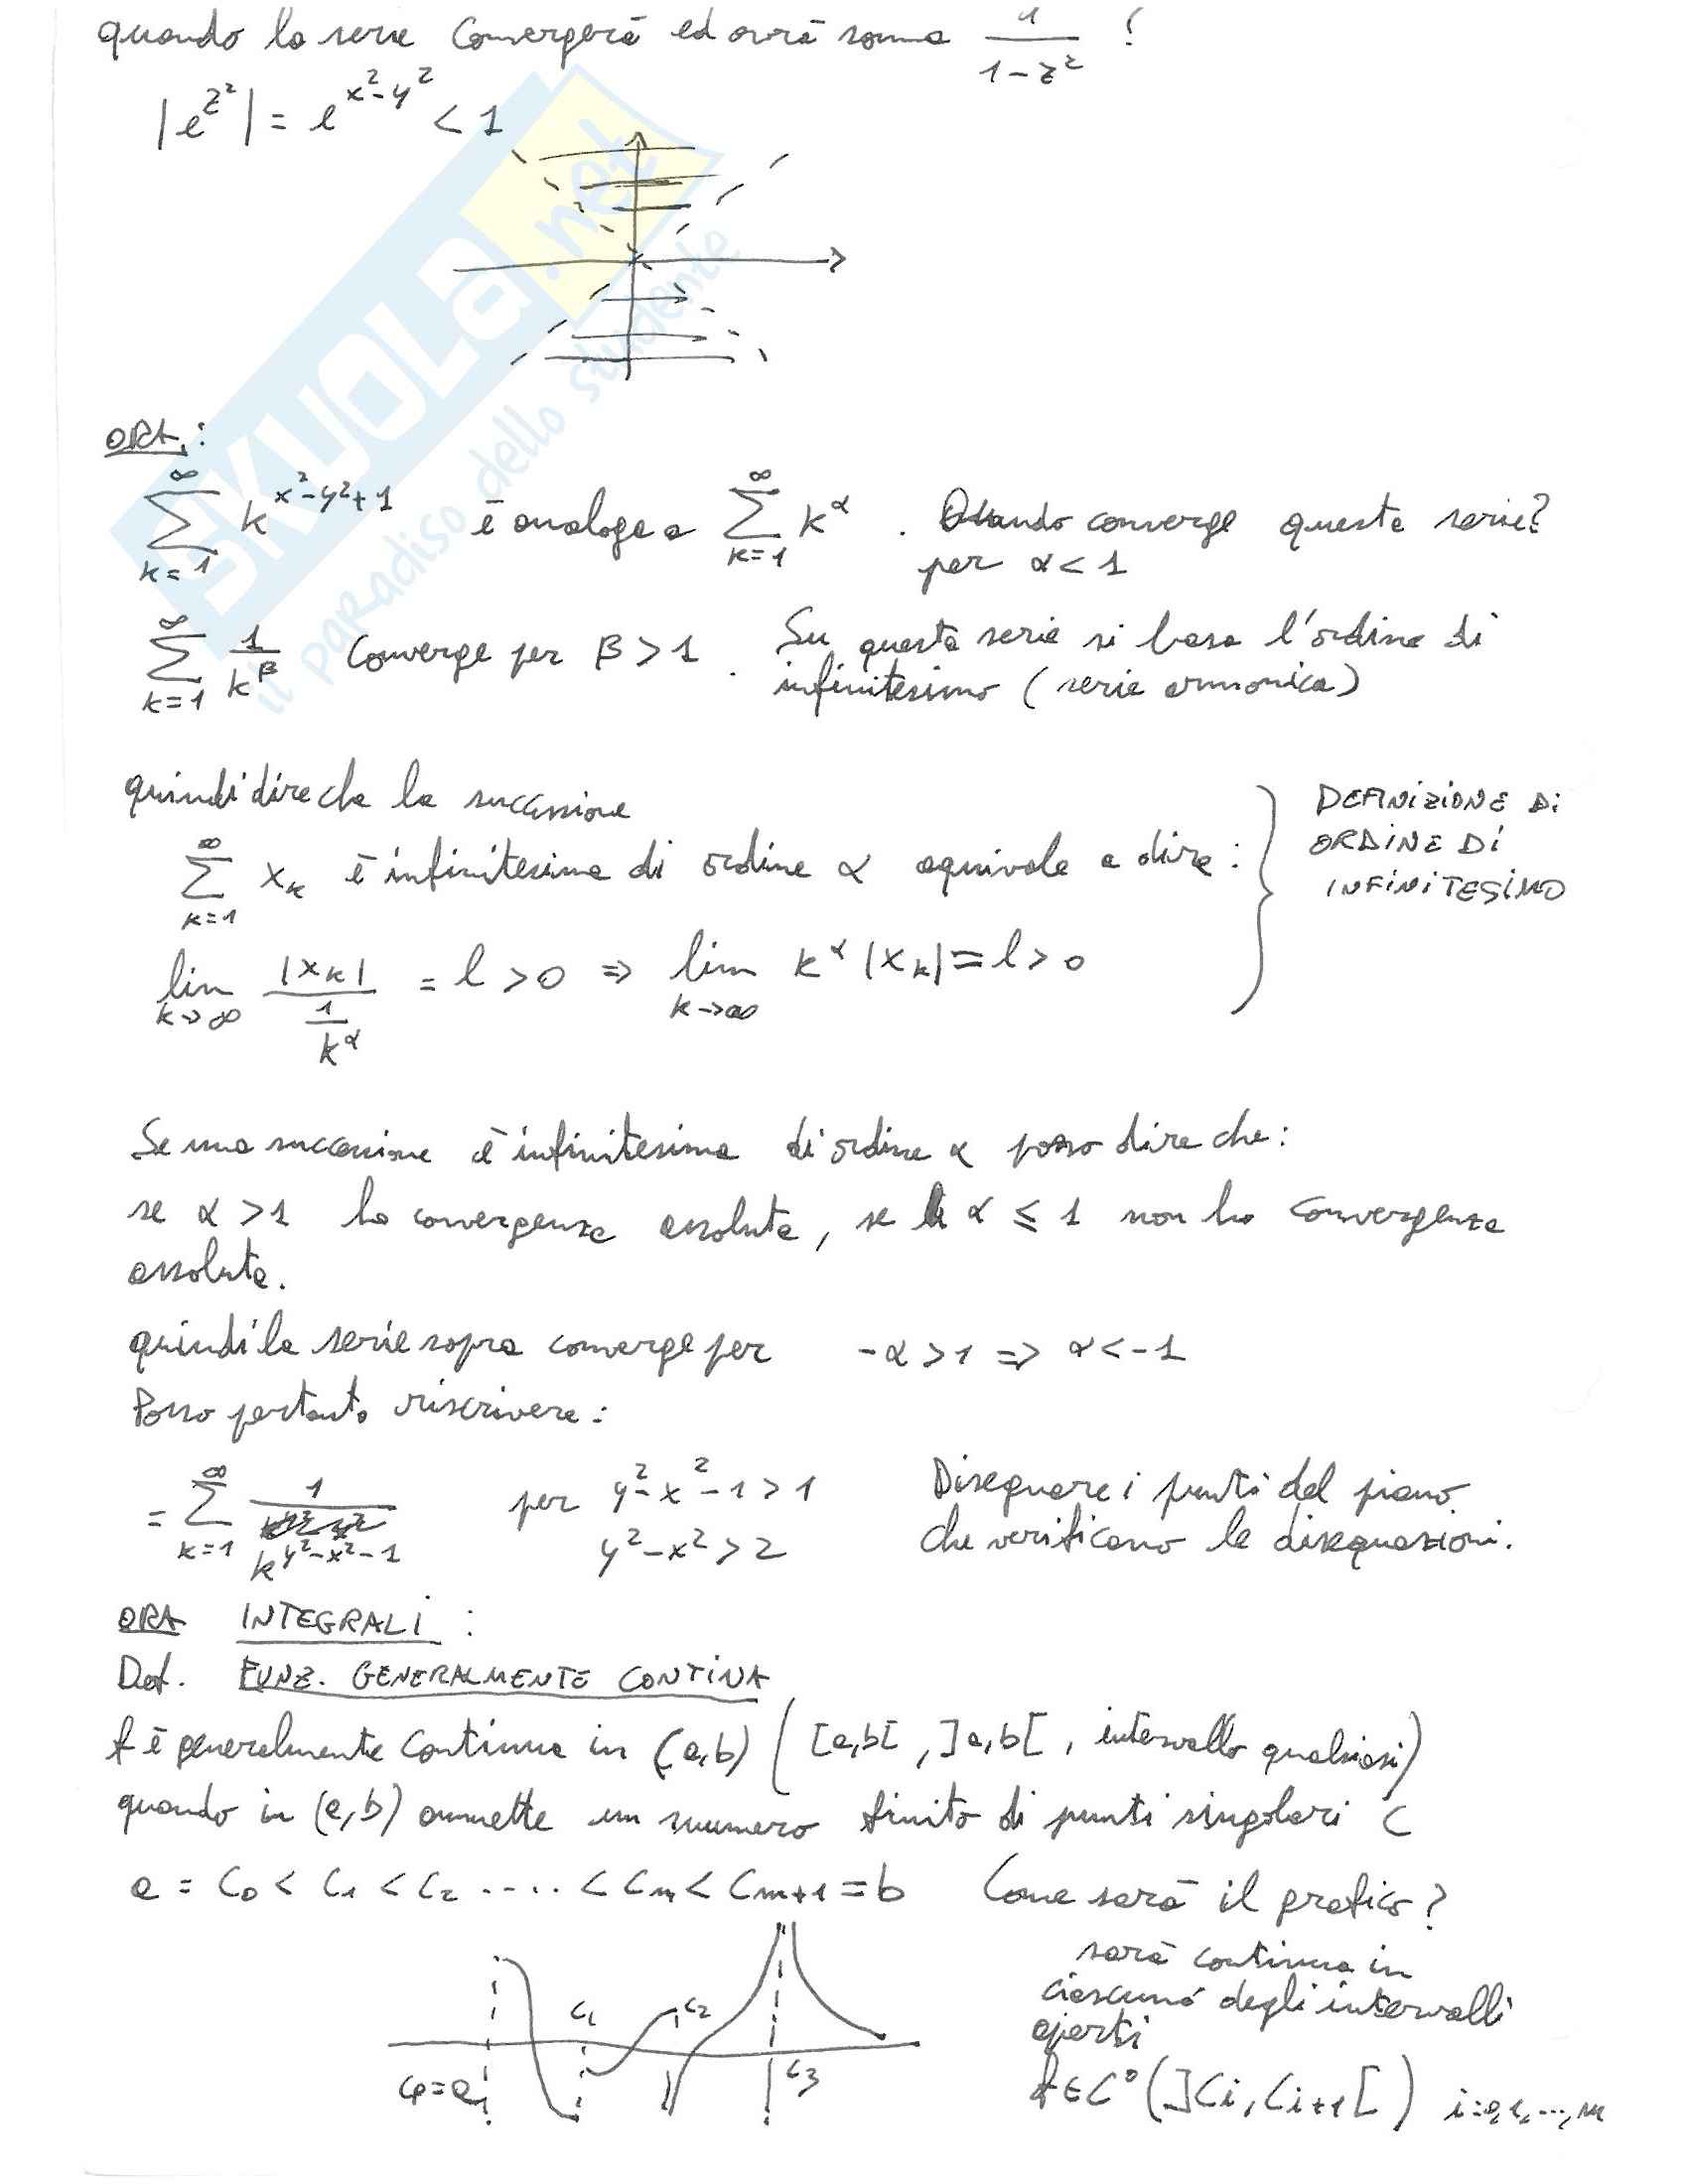 quando la serie convergerà ed avrà somma 1/(1-z²) ?
|e^{z²}| = e^{x²-y²} < 1
ORA:
∑_{k=1}^{∞} k^{x²-y²+1} è analoga a ∑_{k=1}^{∞} k^α . Quando converge questa serie?
per α < 1
∑_{k=1}^{∞} 1/k^β Converge per β > 1 . Su questa serie si basa l'ordine di
infinitesimo (serie armonica)
quindi dire che la successione
∑_{k=1}^{∞} x_k è infinitesima di ordine α equivale a dire:
lim_{k→∞} |x_k| / (1/k^α) = l > 0 ⇒ lim_{k→∞} k^α |x_k| = l > 0
DEFINIZIONE DI
ORDINE DI
INFINITESIMO
Se una successione è infinitesima di ordine α posso dire che:
se α > 1 ho convergenza assoluta, se α ≤ 1 non ho convergenza
assoluta.
quindi la serie sopra converge per -α > 1 ⇒ α < -1
Posso pertanto riscrivere:
= ∑_{k=1}^{∞} 1/k^{y²-x²-1} per y²-x²-1 > 1
y²-x² > 2
Disegnare i punti del piano
che verificano le disequazioni.
ORA INTEGRALI :
Def. FUNZ. GENERALMENTE CONTINUA
f è generalmente continua in (a,b) ( [a,b[ , ]a,b[ , intervallo qualsiasi)
quando in (a,b) ammette un numero finito di punti singolari C
a = C₀ < C₁ < C₂ ..... < Cₘ < Cₘ₊₁ = b Come sarà il grafico?
sarà continua in
ciascuno degli intervalli
aperti
f ∈ C⁰ (]Cᵢ, Cᵢ₊₁[ ) i=0,1,...,m
C₀=a
C₁
C₂
C₃
SKUOLA.net
il paradiso dello studente